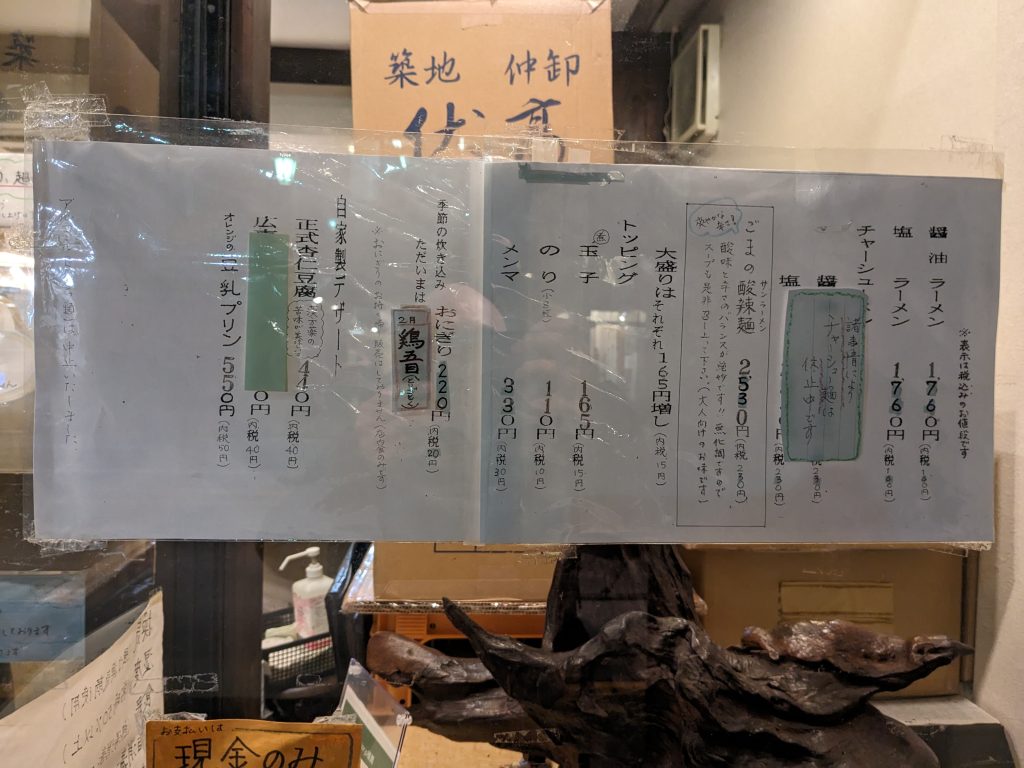 築地 仲卸
伏高
※表示は税込みのお値段です
醤油 ラーメン 1760円(内税160円)
塩 ラーメン 1760円(内税160円)
チャーシュー
諸事情により
チャーシュー麺は
休止中です
醤
(内税230円)
塩
(内税230円)
サンラーメン
ごまの酸辣麺 2530円(内税230円)
酸味と辛さのバランスが絶妙です!!無化調ですので
スープも是非召し上って下さい(大人向けのお味です)
大盛りはそれぞれ165円増し(内税15円)
トッピング
煮玉子 165円(内税15円)
のり 110円(内税10円)
メンマ 330円(内税30円)
季節の炊き込み おにぎり 220円(内税20円)
ただいまは
2月
鶏五目
自家製デザート
正式杏仁豆腐 440円(内税40円)
0円(内税40円)
オレンジの豆乳プリン 550円(内税50円)
お支払いは
現金のみ
しております